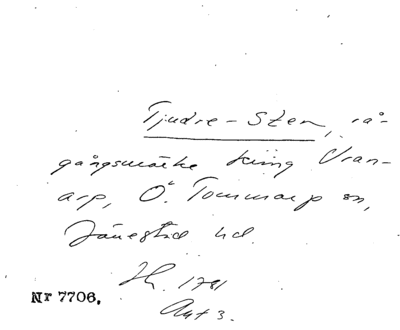 Tjudre-Sten, rå-
gångsmärke kring Vran-
arp, Ö. Tommarp sn,
Järrestad hd.
1781
Akt 3.
Nr 7706.